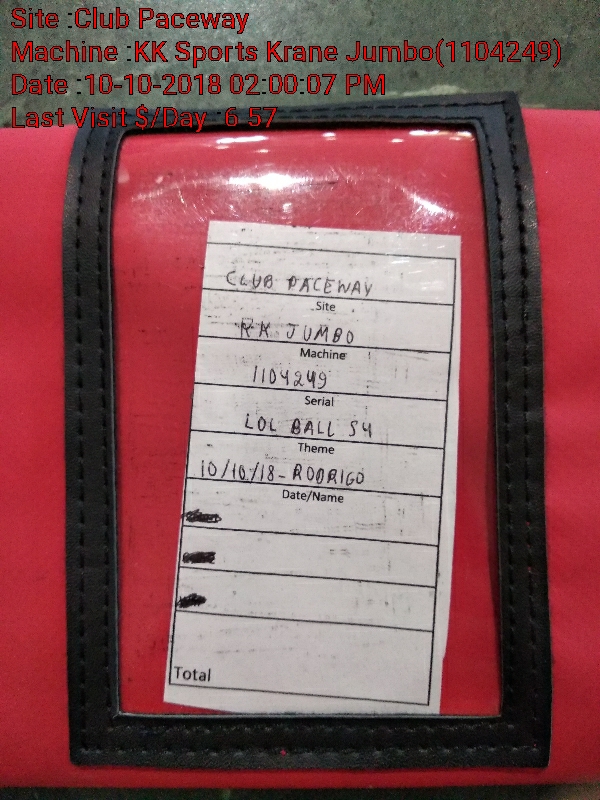 Site :Club Paceway
Machine :KK Sports Krane Jumbo(1104249)
Date :10-10-2018 02:00:07 PM
Last Visit $/Day :6 57
CLUB PACEWAY
Site
KK JUMBO
Machine
1104249
Serial
LOL BALL S4
Theme
10/10/18- RODRIGO
Date/Name
Total